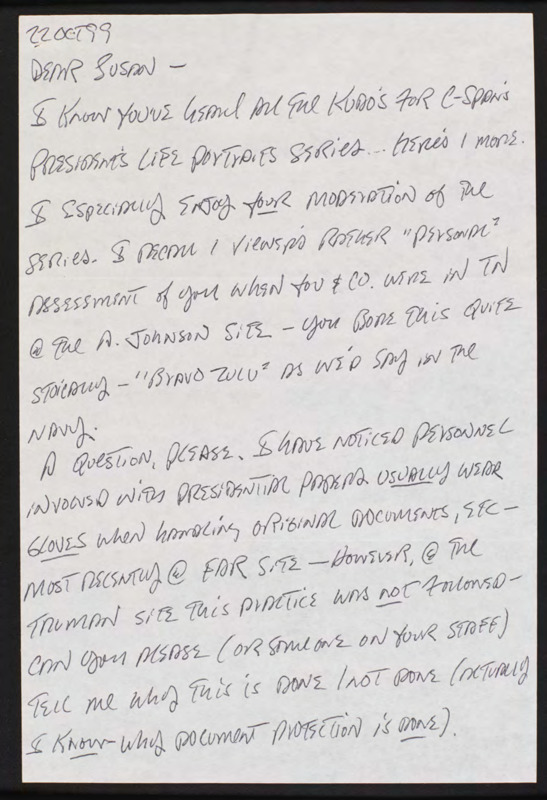 22 OCT 99
DEAR SUSAN —
I KNOW YOU'VE HEARD ALL THE KUDO'S FOR C-SPAN'S
PRESIDENT'S LIFE PORTRAITS SERIES... HERE'S 1 MORE.
I ESPECIALLY ENJOY YOUR MODERATION OF THE
SERIES. I RECALL 1 VIEWER'S RATHER "PERSONAL"
ASSESSMENT OF YOU WHEN YOU & CO. WERE IN TN
@ THE A. JOHNSON SITE — YOU BORE THIS QUITE
STOICALLY — "BRAVO ZULU" AS WE'D SAY IN THE
NAVY.
A QUESTION, PLEASE. I HAVE NOTICED PERSONNEL
INVOLVED WITH PRESIDENTIAL PAPERS USUALLY WEAR
GLOVES WHEN HANDLING ORIGINAL DOCUMENTS, ETC —
MOST RECENTLY @ FDR SITE — HOWEVER, @ THE
TRUMAN SITE THIS PRACTICE WAS NOT FOLLOWED —
CAN YOU PLEASE (OR SOMEONE ON YOUR STAFF)
TELL ME WHY THIS IS DONE / NOT DONE (ACTUALLY
I KNOW WHY DOCUMENT PROTECTION IS DONE).